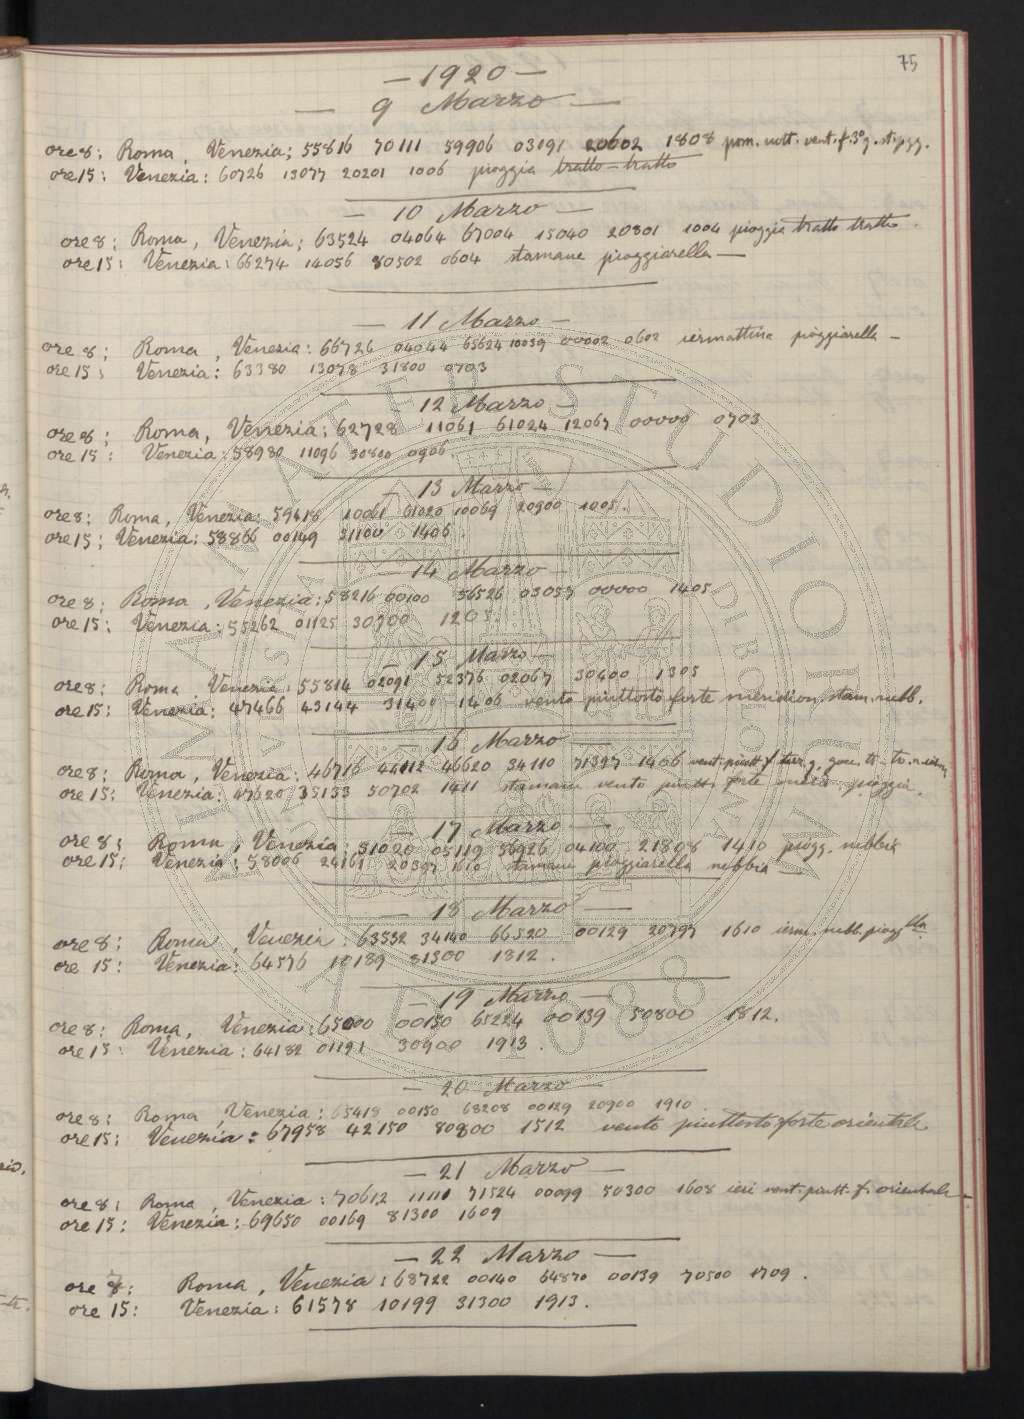 75
— 1920 —
— 9 Marzo —
ore 8: Roma, Venezia: 55816 70111 59906 03191 20602 1808 pom. nott. vent. f. 3° g. st. pgg.
ore 15: Venezia: 60726 13077 20201 1006 pioggia tratto-tratto
— 10 Marzo —
ore 8: Roma, Venezia: 63524 04064 67004 15040 20801 1004 pioggia tratto tratto.
ore 15: Venezia: 66274 14056 80502 0604 stamane pioggiarella —
— 11 Marzo —
ore 8: Roma, Venezia: 66726 04044 65624 10039 00002 0602 iermattina pioggiarella —
ore 15: Venezia: 63380 13078 31800 0703
12 Marzo —
ore 8: Roma, Venezia: 62728 11061 61024 12067 00000 0703
ore 15: Venezia: 58980 11096 30800 0906.
— 13 Marzo —
ore 8: Roma, Venezia: 59418 10061 61020 10069 20900 1005.
ore 15: Venezia: 58866 00149 31100 1406.
— 14 Marzo —
ore 8: Roma, Venezia: 58216 00100 56526 03057 00000 1405
ore 15: Venezia: 55262 01125 30700 1205.
— 15 Marzo —
ore 8: Roma, Venezia: 55814 02091 52376 02067 30400 1305
ore 15: Venezia: 47466 43144 31400 1406 vento piuttosto forte meridion. stam. nebb.
16 Marzo —
ore 8: Roma, Venezia: 46716 44112 46620 34110 71397 1406 vent. piutt. f.
ore 15: Venezia: 47620 35133 50702 1411 stamane vento piutt. forte pioggia.
— 17 Marzo —
ore 8: Roma, Venezia: 51020 05119 56926 04100 21808 1410 piogg. nebbia
ore 15: Venezia: 58006 24161 20397 1610 stamane pioggiarella nebbia —
— 18 Marzo —
ore 8: Roma, Venezia: 63532 34140 66520 00129 20797 1610 ierm. nebb. piogglla.
ore 15: Venezia: 64576 10189 81300 1812.
— 19 Marzo —
ore 8: Roma, Venezia: 65000 00150 65224 00139 50800 1812.
ore 15: Venezia: 64182 01191 30900 1913.
— 20 Marzo —
ore 8: Roma, Venezia: 65418 00150 68208 00129 20900 1910
ore 15: Venezia: 67958 42150 80800 1512 vento piuttosto forte orientale
— 21 Marzo —
ore 8: Roma, Venezia: 70612 11111 71524 00099 50300 1608 ieri vent. piutt. f. orientale —
ore 15: Venezia: 69650 00169 81300 1609
— 22 Marzo —
ore 8: Roma, Venezia: 68722 00140 64870 00139 70500 1709.
ore 15: Venezia: 61578 10199 31300 1913.
ALMA MATER STUDIORUM
A.D. 1088